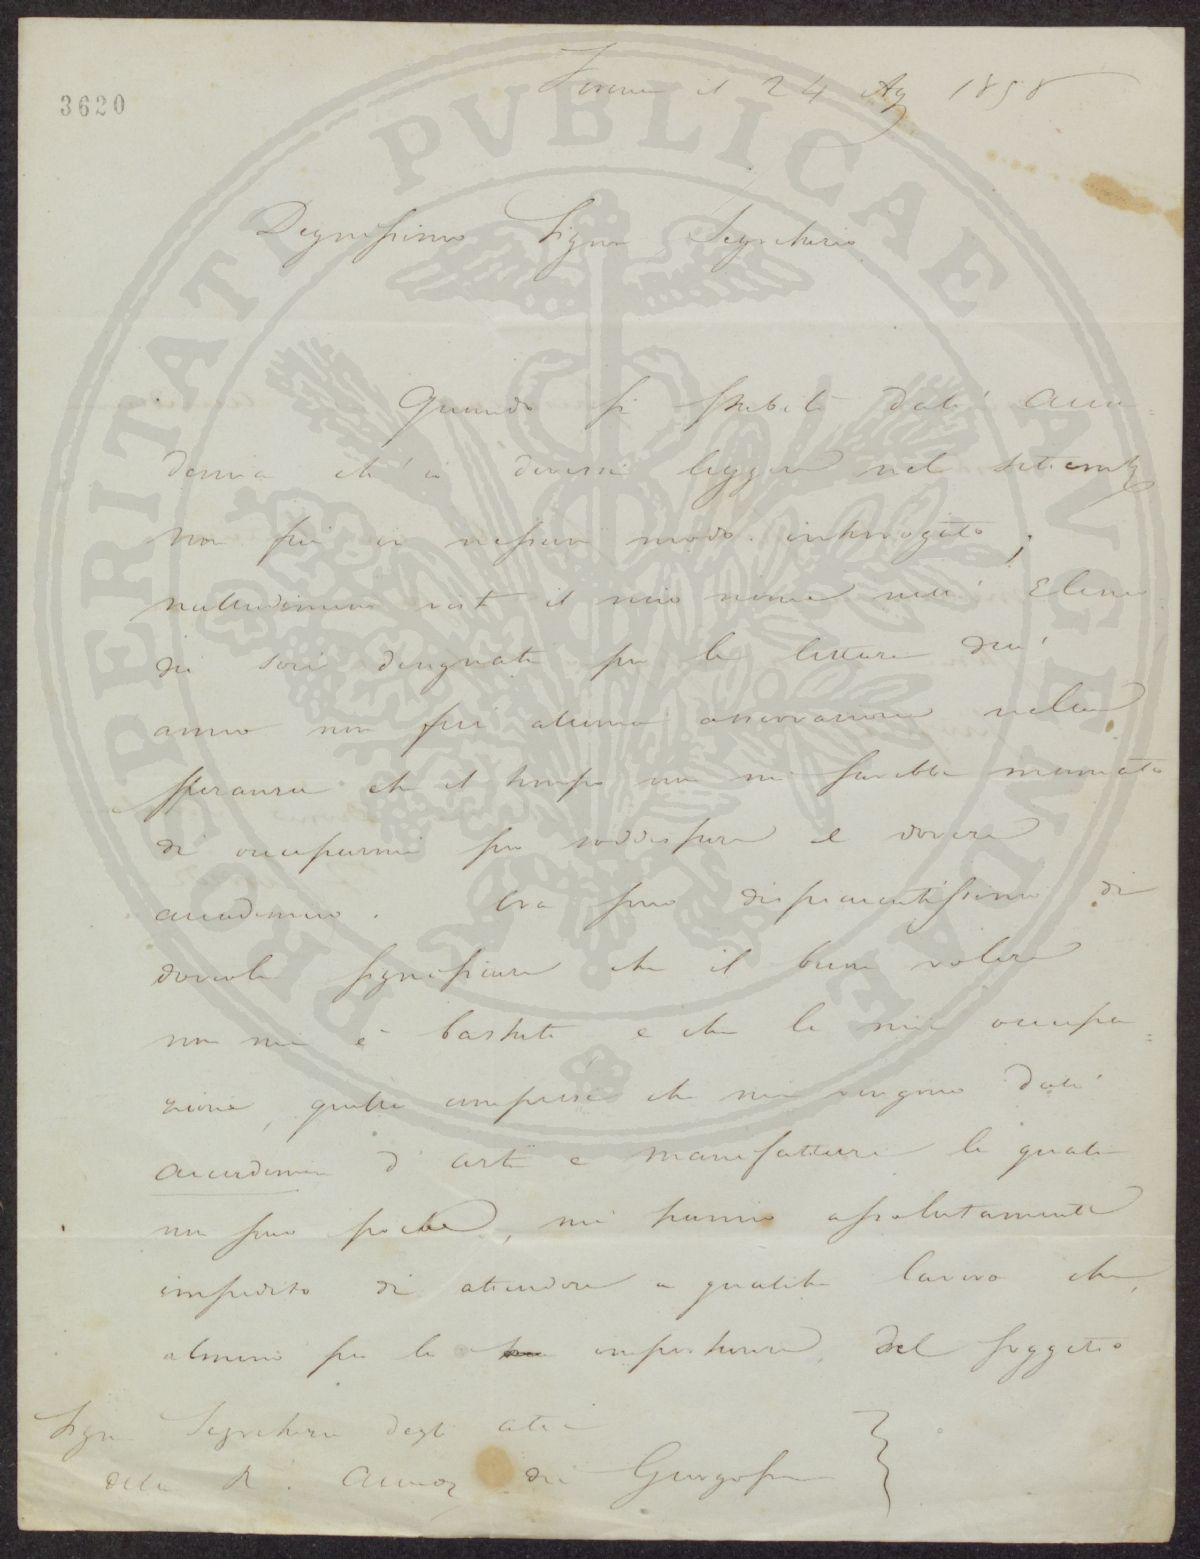 3620
il 24 Ag 1858
Degnissimo Signor Segretario
Quando si stabilì dall' Acca=
demia ch' io dovessi leggere nel settembre
non fui in nessun modo interrogato;
nulladimeno visto il mio nome nell' Elenco
dei soci designati per le letture dell'
anno non feci alcuna osservazione nella
speranza che il tempo non mi sarebbe mancato
di occuparmi per soddisfare al dovere
accademico. Ora sono dispiacentissimo di
doverle significare che il buon volere
non mi è bastato e che le mie occupa=
zioni, quelle comprese che mi vengono dall'
accademia d' arti e manifatture le quali
non sono poche, mi hanno assolutamente
impedito di attendere a qualche lavoro che,
almeno per la importanza del soggetto
Signor Segretario degli atti
della R. Accad dei Georgofili
PROSPERITATI PVBLICAE AVGENDAE